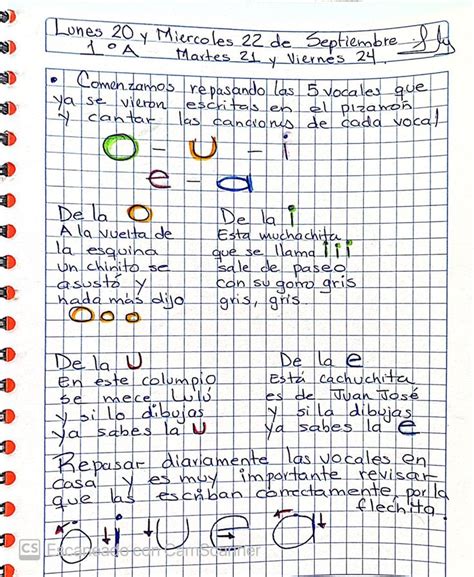 Lunes 20 y Miercoles 22 de Septiembre
1°A Martes 21 y Viernes 24
• Comenzamos repasando las 5 vocales que
ya se vieron escritas en el pizarrón
y cantar las canciones de cada vocal
O - U - i
e - a
De la O
A la vuelta de
la esquina
un chinito se
asustó y
nada más dijo
O o o
De la i
Esta muchachita
que se llama iii
sale de paseo
con su gorro gris
gris, gris
De la U
En este columpio
se mece Lulú
y si lo dibujas
ya sabes la U
De la e
Está cachuchita
es de Juan José
y si la dibujas
ya sabes la e
Repasar diariamente las vocales en
casa y es muy importante revisar
que las escriban correctamente, por la
flechita.
O i U e a
CS Escaneado con CamScanner